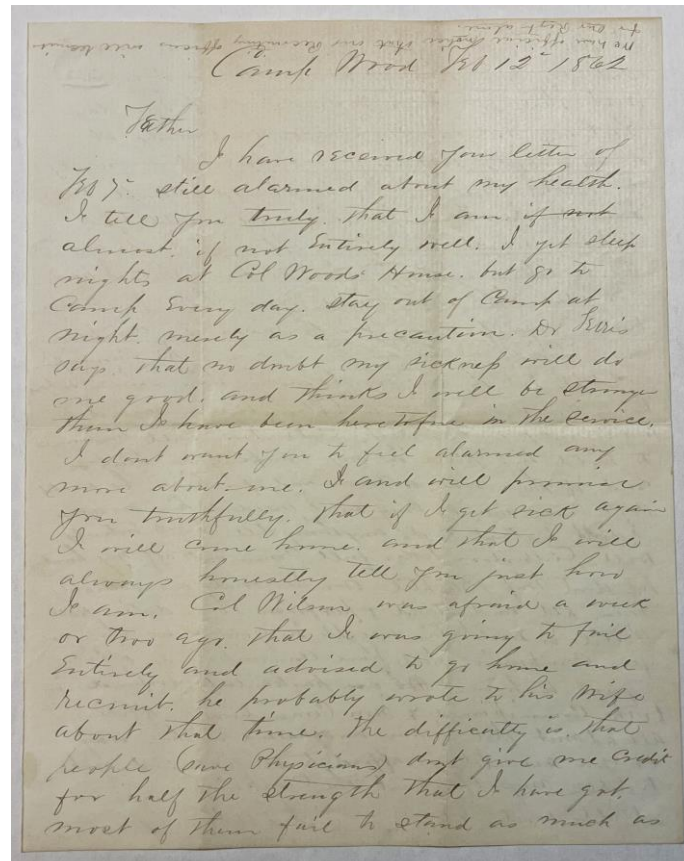 We have official notice that our Recruiting officers will
to our Regt
Camp Wood Feb 12th 1862
Father
I have received your letter of
Feb 7th still alarmed about my health.
I tell you truly that I am if not
almost, if not Entirely well. I get sleep
nights at Col Woods House. but go to
Camp Every day. stay out of Camp at
night. merely as a precaution. Dr Ferris
says. that no doubt my sickness will do
me good. and thinks I will be stronger
than I have been heretofore in the service.
I dont want you to feel alarmed any
more about me. I and will promise
you truthfully. that if I get sick again
I will come home. and that I will
always honestly tell you just how
I am. Col Wilson was afraid a week
or two ago. that I was going to fail
Entirely and advised to go home and
recruit. he probably wrote to his Wife
about that time. The difficulty is. that
people (save Physicians) dont give me Credit
for half the strength that I have got.
most of them fail to stand as much as